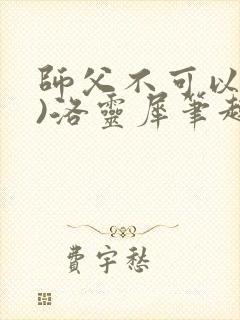 師父不可以
)洛靈犀筆趣
費宇愁